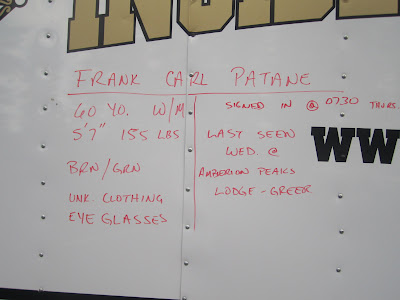 FRANK CARL PATANE
60 YO. W/M
5'7" 155 LBS
BRN/GRN
UNK. CLOTHING
EYE GLASSES
SIGNED IN @ 0730 THURS.
LAST SEEN
WED. @
AMBERION PEAKS
LODGE - GREER
WW